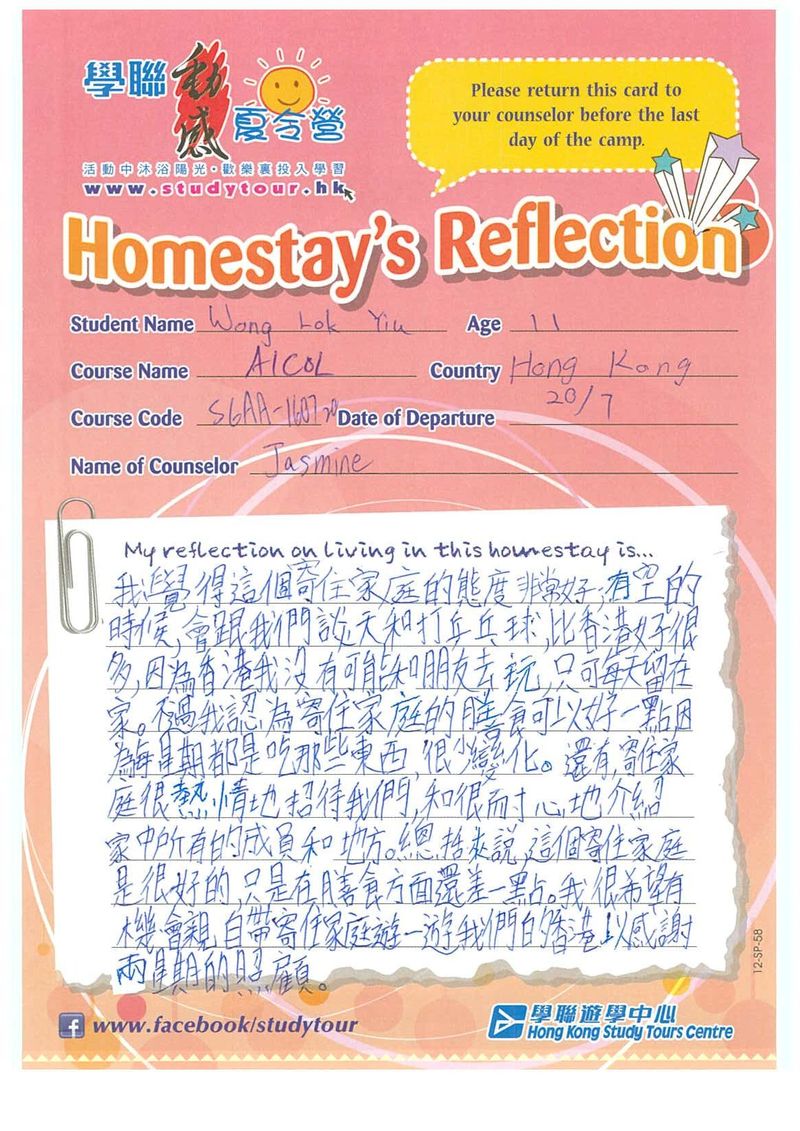 學聯
動感
夏令營
活動中沐浴陽光・歡樂裏投入學習
www.studytour.hk
Please return this card to
your counselor before the last
day of the camp.
Homestay's Reflection
Student Name Wong Lok Yiu Age 11
Course Name AICOL Country Hong Kong
Course Code S6AA-160720 Date of Departure 20/7
Name of Counselor Jasmine
My reflection on living in this homestay is...
我覺得這個寄住家庭的態度非常好,有空的
時候,會跟我們談天和打乒乓球,比香港好很
多,因為香港我沒有可能和朋友去玩,只可每天留在
家。不過我認為寄住家庭的膳食可以好一點,因
為每星期都是吃那些東西,很少變化。還有,寄住家
庭很熱情地招待我們,和很耐心地介紹
家中所有的成員和地方。總括來說,這個寄住家庭
是很好的,只是在膳食方面還差一點。我很希望有
機會親自帶寄住家庭遊一遊我們的香港,以感謝
兩星期的照顧。
12-SP-58
www.facebook/studytour
學聯遊學中心
Hong Kong Study Tours Centre